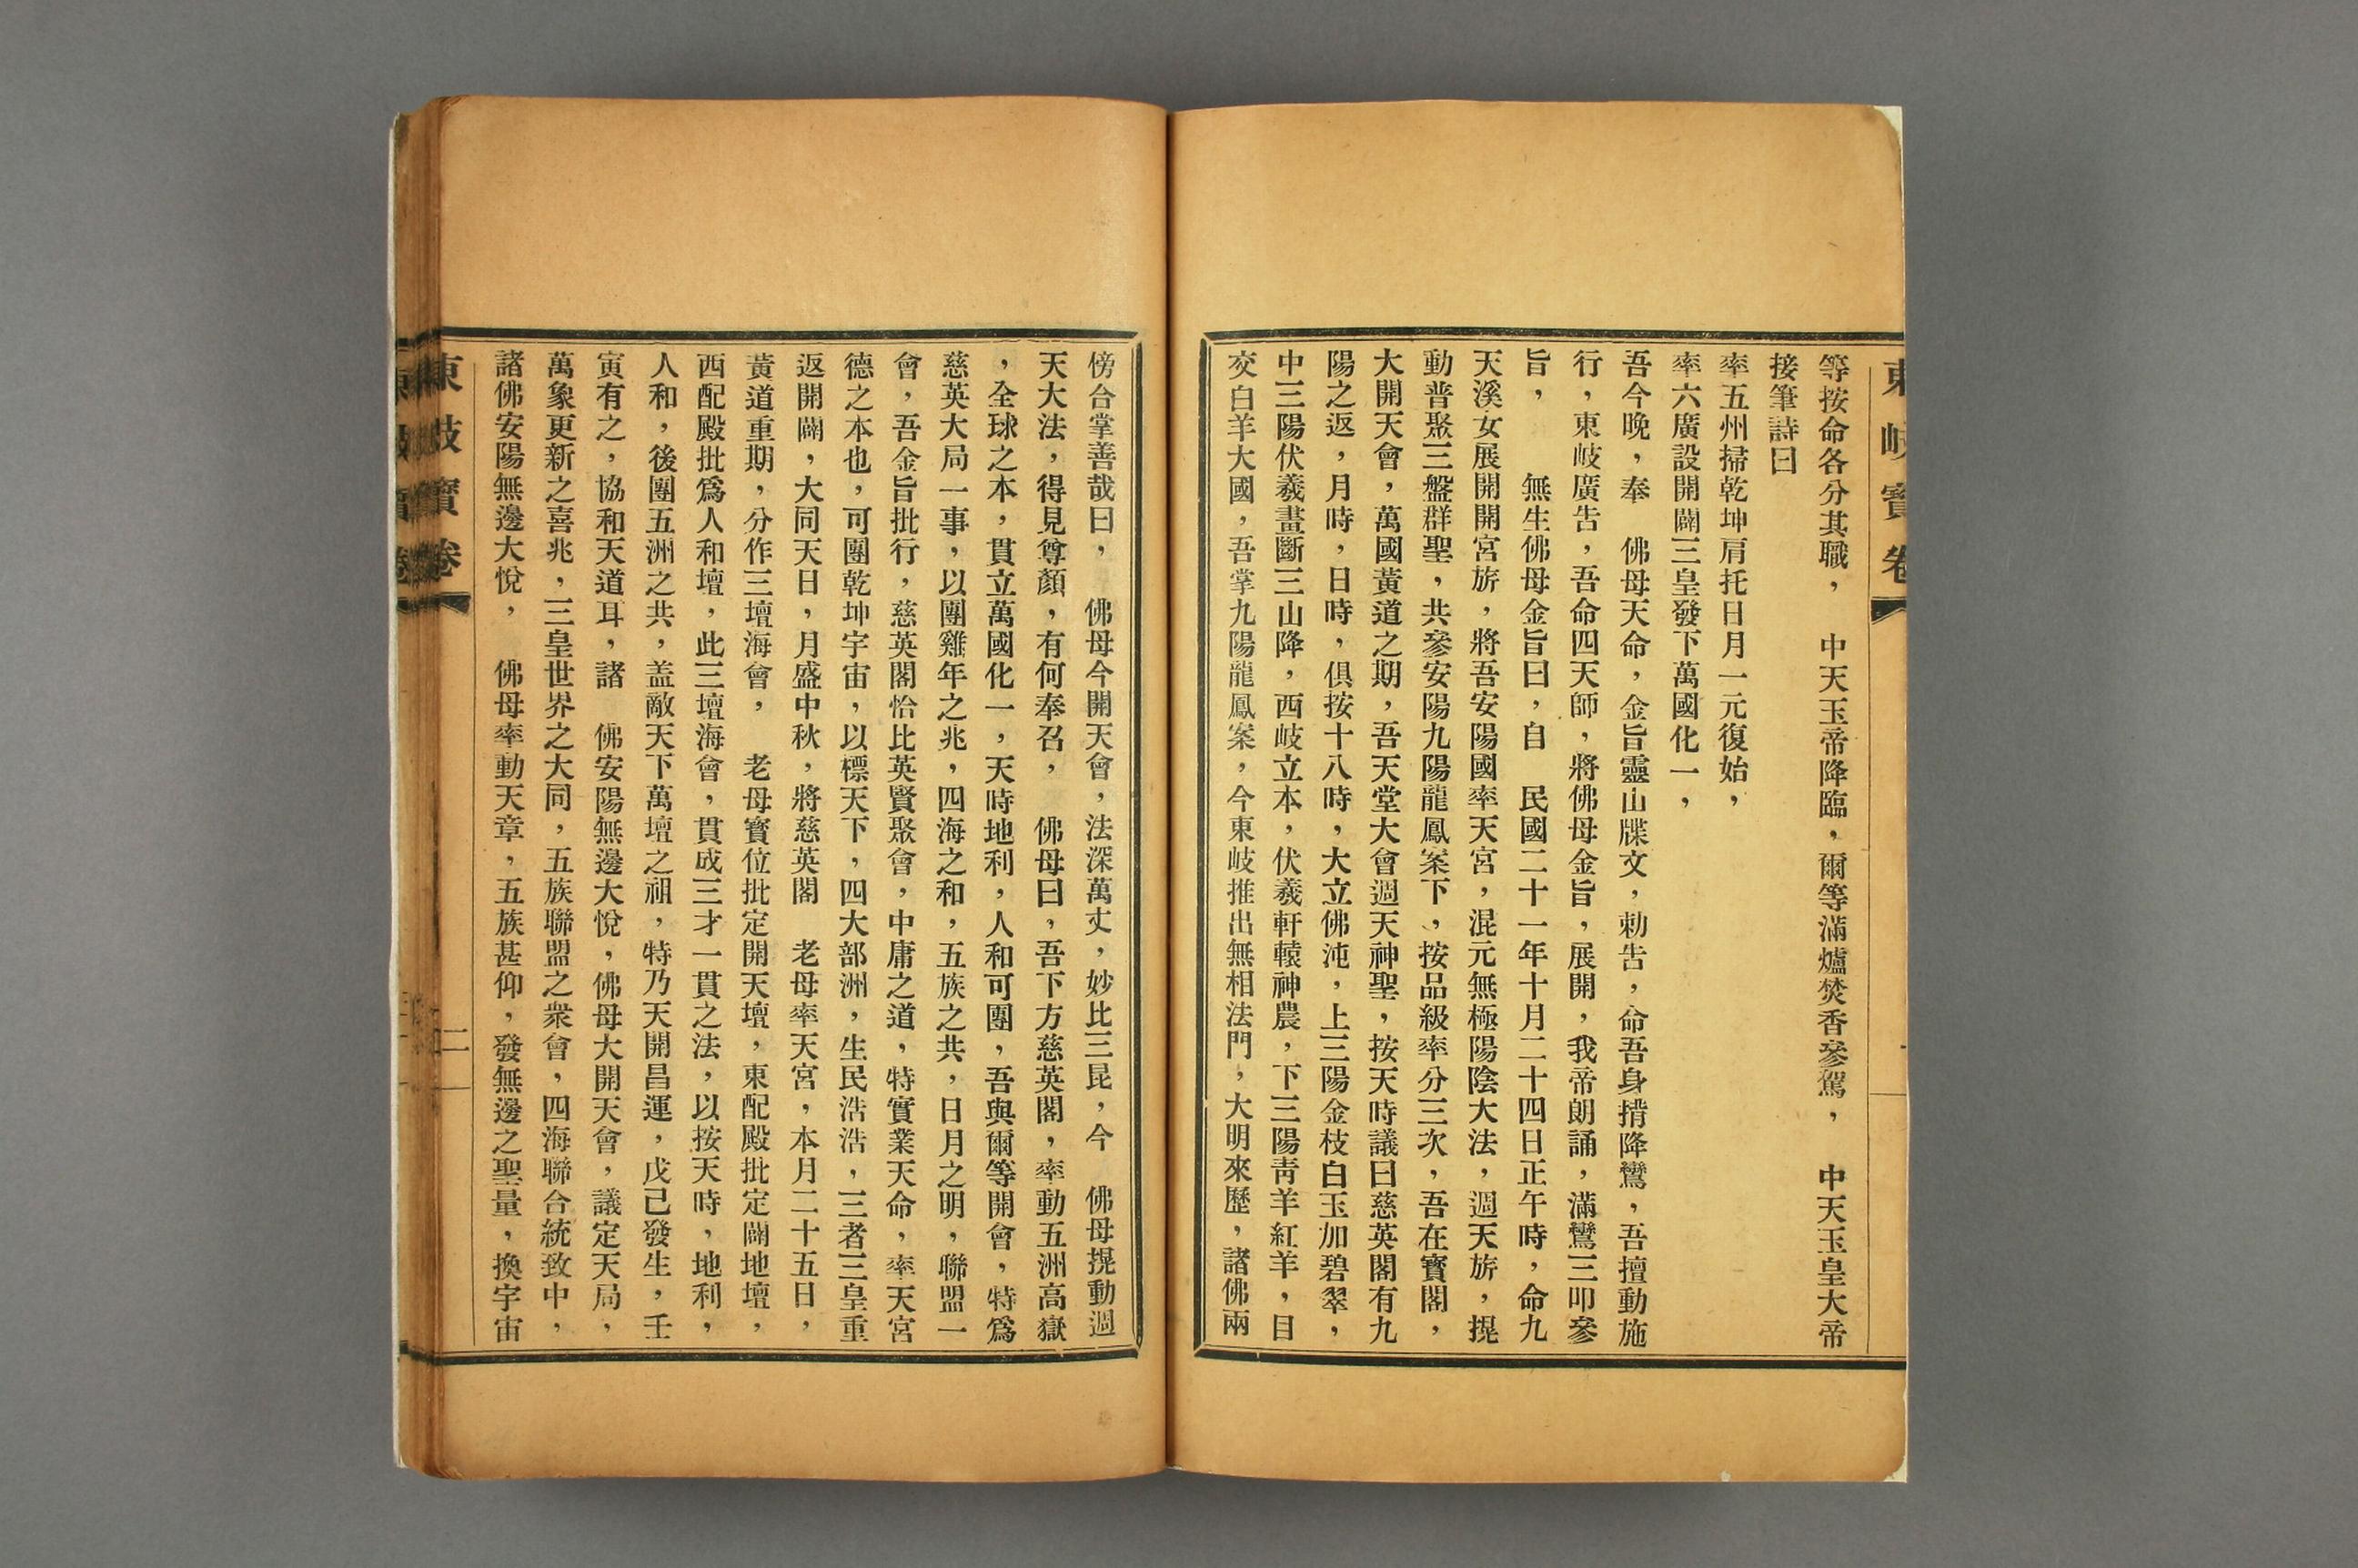 東岐寶卷
等按命各分其職，　中天玉帝降臨，爾等滿爐焚香參駕，　中天玉皇大帝
接筆詩曰
率五州掃乾坤肩托日月一元復始，
率六廣設開闢三皇發下萬國化一，
吾今晚，奉　佛母天命，金旨靈山牒文，勅告，命吾身揹降鸞，吾擅動施
行，東岐廣告，吾命四天師，將佛母金旨，展開，我帝朗誦，滿鸞三叩參
旨，　　無生佛母金旨曰，自　民國二十一年十月二十四日正午時，命九
天溪女展開開宮旂，將吾安陽國率天宮，混元無極陽陰大法，週天旂，提
動普聚三盤群聖，共參安陽九陽龍鳳案下，按品級率分三次，吾在寶閣，
大開天會，萬國黃道之期，吾天堂大會週天神聖，按天時議曰慈英閣有九
陽之返，月時，日時，俱按十八時，大立佛沌，上三陽金枝白玉加碧翠，
中三陽伏羲畫斷三山降，西岐立本，伏羲軒轅神農，下三陽靑羊紅羊，目
交白羊大國，吾掌九陽龍鳳案，今東岐推出無相法門，大明來歷，諸佛兩
傍合掌善哉曰，　佛母今開天會，法深萬丈，妙比三昆，今　佛母提動週
天大法，得見尊顏，有何奉召，　佛母曰，吾下方慈英閣，率動五洲高嶽
，全球之本，貫立萬國化一，天時地利，人和可團，吾與爾等開會，特爲
慈英大局一事，以團雞年之兆，四海之和，五族之共，日月之明，聯盟一
會，吾金旨批行，慈英閣恰比英賢聚會，中庸之道，特實業天命，率天宮
德之本也，可團乾坤宇宙，以標天下，四大部洲，生民浩浩，三者三皇重
返開闢，大同天日，月盛中秋，將慈英閣　老母率天宮，本月二十五日，
黃道重期，分作三壇海會，　老母寳位批定開天壇，東配殿批定闢地壇，
西配殿批爲人和壇，此三壇海會，貫成三才一貫之法，以按天時，地利，
人和，後團五洲之共，盖敵天下萬壇之祖，特乃天開昌運，戊己發生，壬
寅有之，協和天道耳，諸　佛安陽無邊大悅，佛母大開天會，議定天局，
萬象更新之喜兆，三皇世界之大同，五族聯盟之衆會，四海聯合統致中，
諸佛安陽無邊大悅，　佛母率動天章，五族甚仰，發無邊之聖量，換宇宙
東岐寶卷
二